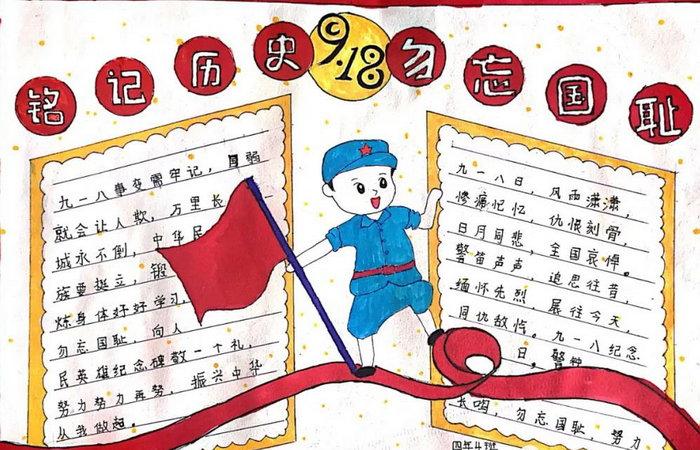 铭记历史 9.18 勿忘国耻
九一八事变需牢记，弱
就会让人欺，万里长
城永不倒，中华民
族要挺立，锻
炼身体好好学习，
勿忘国耻，向人
民英雄纪念碑敬一个礼，
努力努力再努，振兴中华
从我做起。
九一八日，风雨潇潇，
惨痛记忆，仇恨刻骨，
日月同悲，全国哀悼。
警笛声声，追思往昔，
缅怀先烈，展往今天，
同仇敌忾。九一八纪念
日，警钟
长鸣，勿忘国耻，努力
四年4班